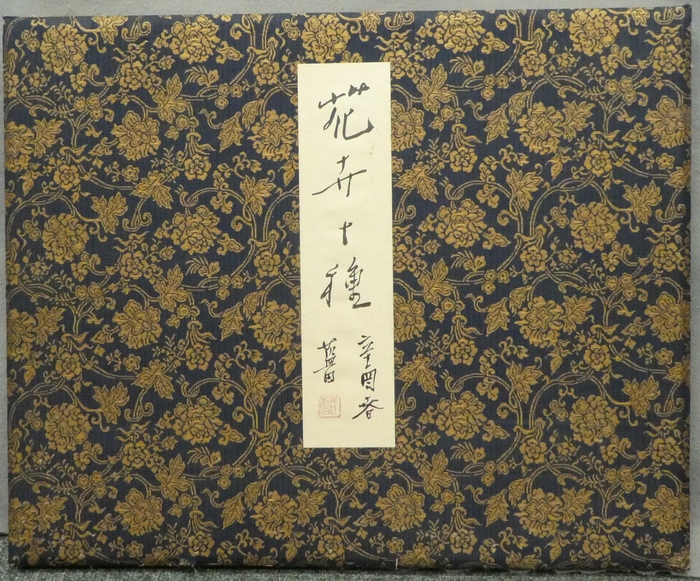 花卉十種
辛酉春